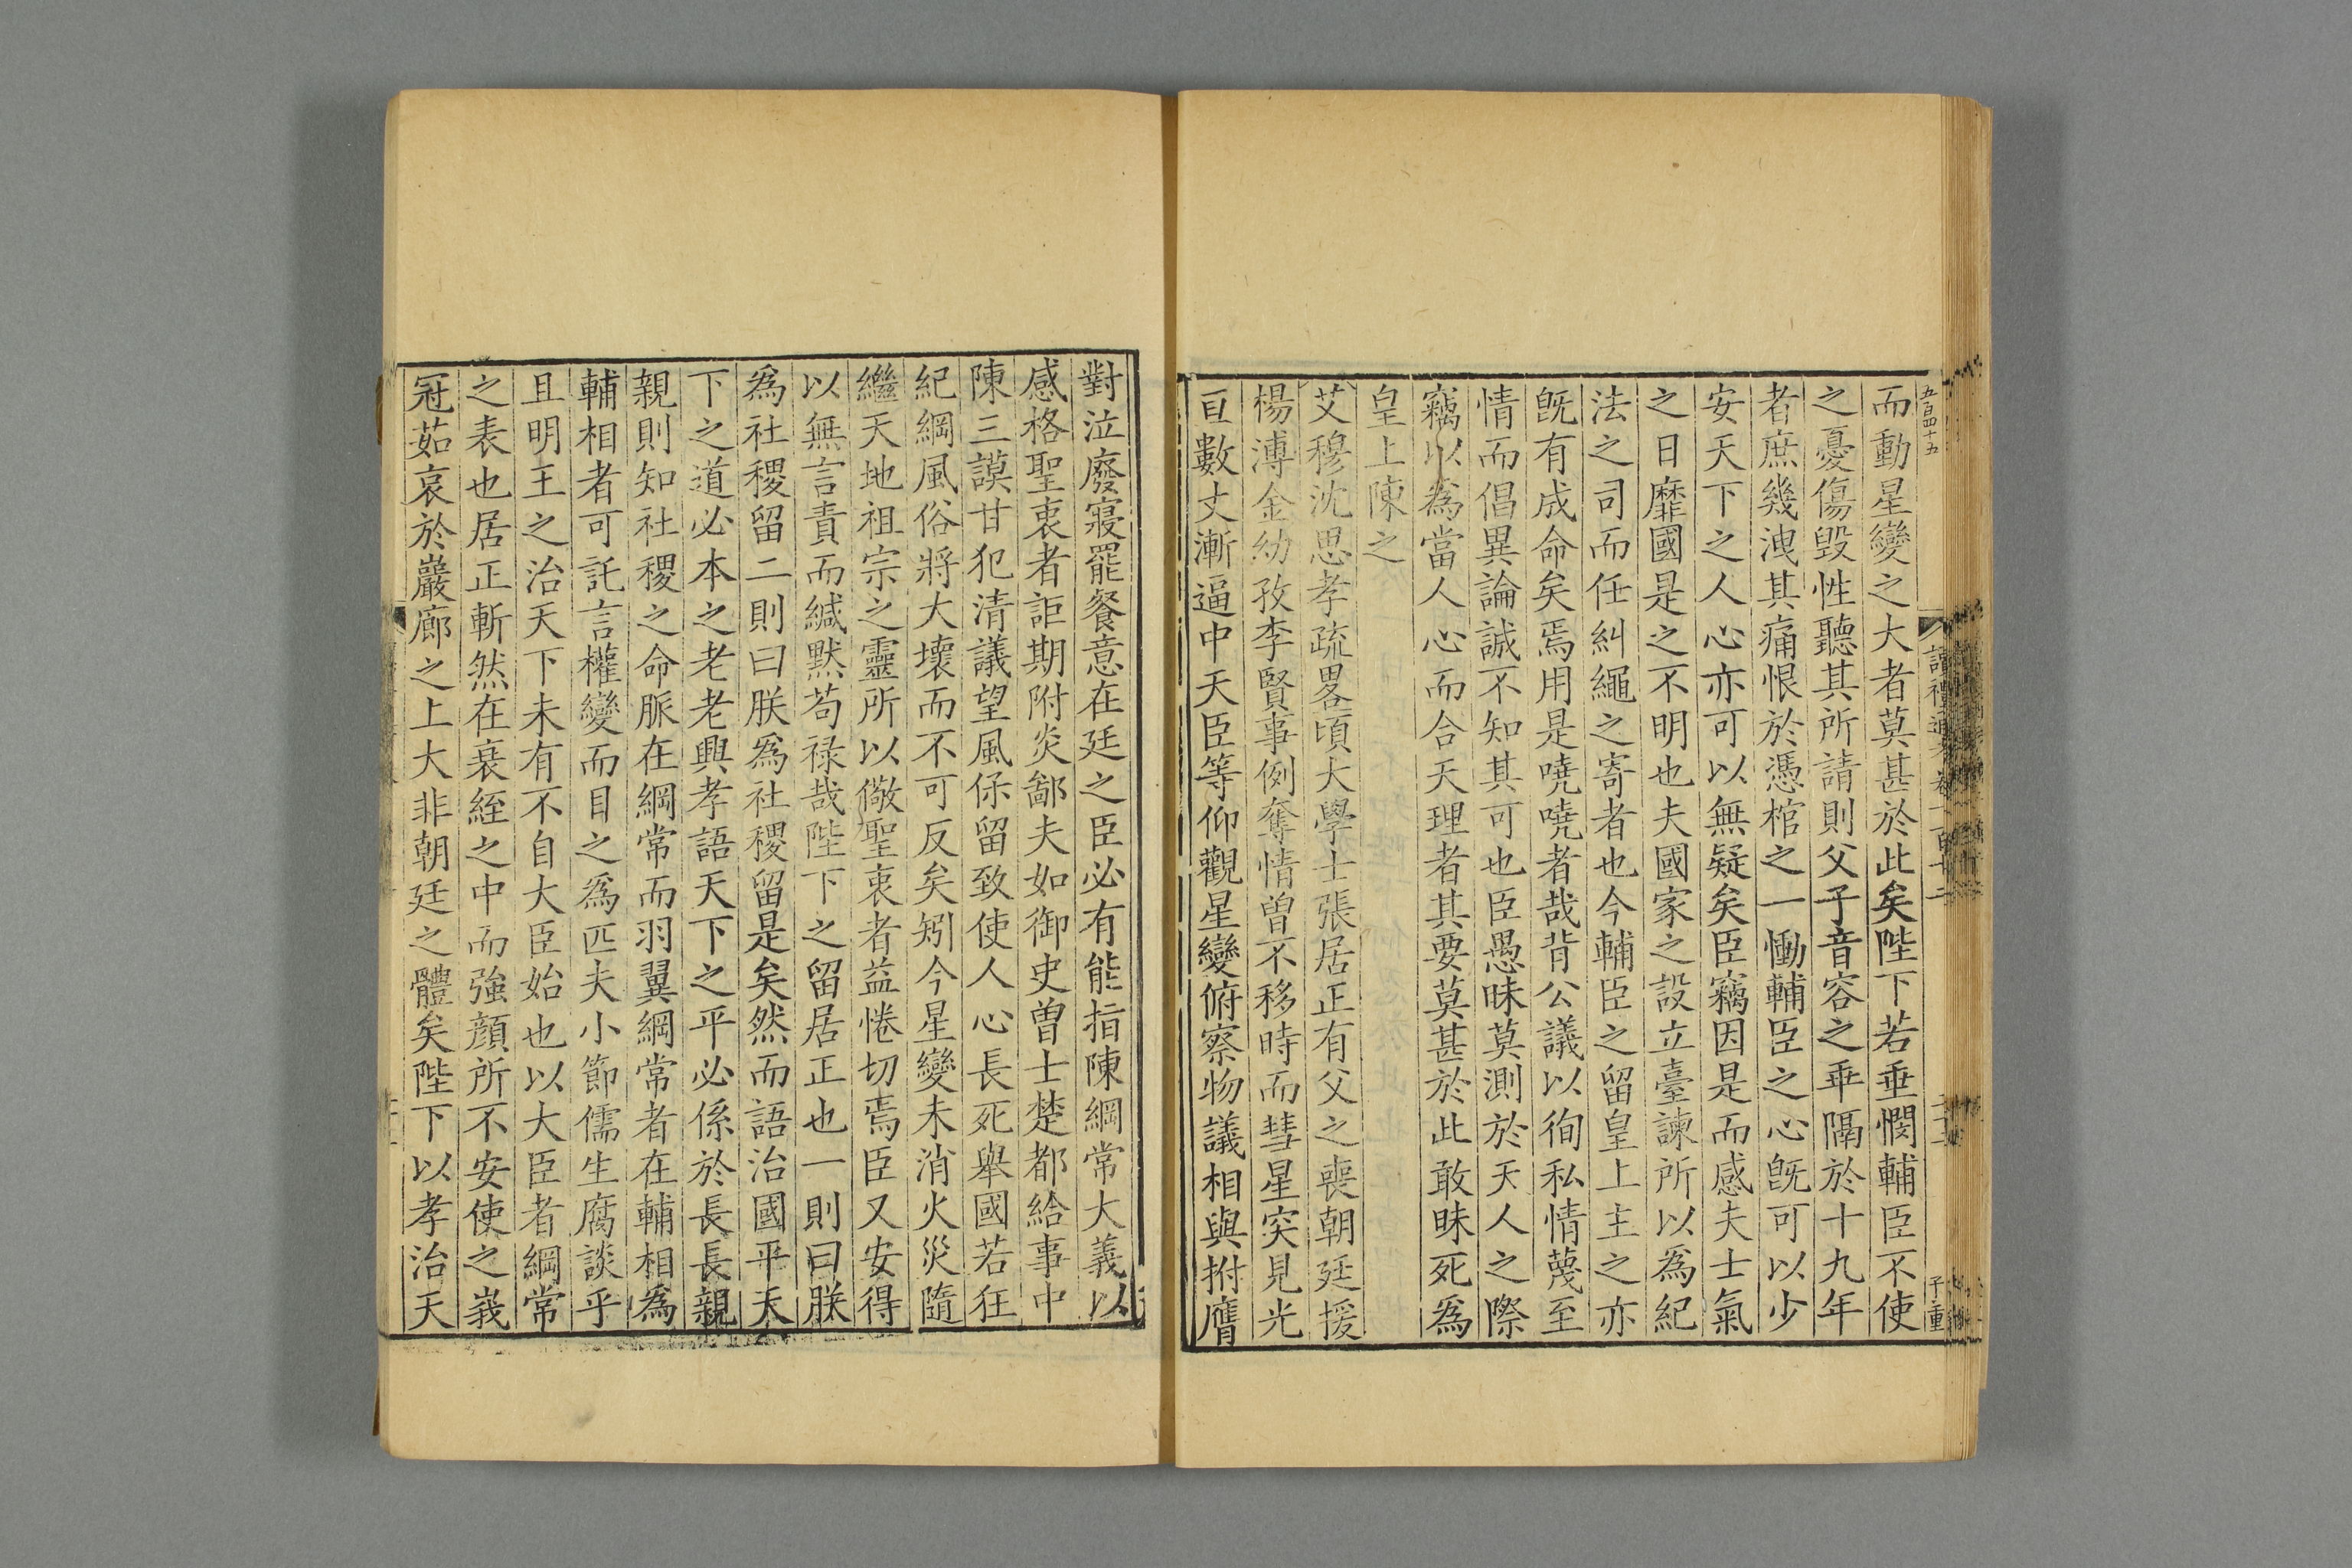 五百四十五
讀禮通考卷一百十二
子重
而動星變之大者莫甚於此矣陛下若垂憫輔臣不使
之憂傷毀性聽其所請則父子音容之乖隔於十九年
者庶幾洩其痛恨於憑棺之一慟輔臣之心既可以少
安天下之人心亦可以無疑矣臣竊因是而感夫士氣
之日靡國是之不明也夫國家之設立臺諫所以爲紀
法之司而任糾繩之寄者也今輔臣之留皇上主之亦
既有成命矣焉用是嘵嘵者哉背公議以徇私情蔑至
情而倡異論誠不知其可也臣愚昧莫測於天人之際
竊以爲當人心而合天理者其要莫甚於此敢昧死爲
皇上陳之
艾穆沈思孝疏畧頃大學士張居正有父之喪朝廷援
楊溥金幼孜李賢事例奪情曾不移時而彗星突見光
亘數丈漸逼中天臣等仰觀星變俯察物議相與拊膺
對泣廢寢罷餐意在廷之臣必有能指陳綱常大義以
感格聖衷者詎期附炎鄙夫如御史曾士楚都給事中
陳三謨甘犯清議望風保留致使人心長死舉國若狂
紀綱風俗將大壞而不可反矣矧今星變未消火災隨
繼天地祖宗之靈所以儆聖衷者益惓切焉臣又安得
以無言責而緘默苟祿哉陛下之留居正也一則曰朕
爲社稷留二則曰朕爲社稷留是矣然而語治國平天
下之道必本之老老興孝語天下之平必係於長長親
親則知社稷之命脈在綱常而羽翼綱常者在輔相爲
輔相者可託言權變而目之爲匹夫小節儒生腐談乎
且明王之治天下未有不自大臣始也以大臣者綱常
之表也居正斬然在衰絰之中而強顔所不安使之峩
冠茹哀於巖廊之上大非朝廷之體矣陛下以孝治天